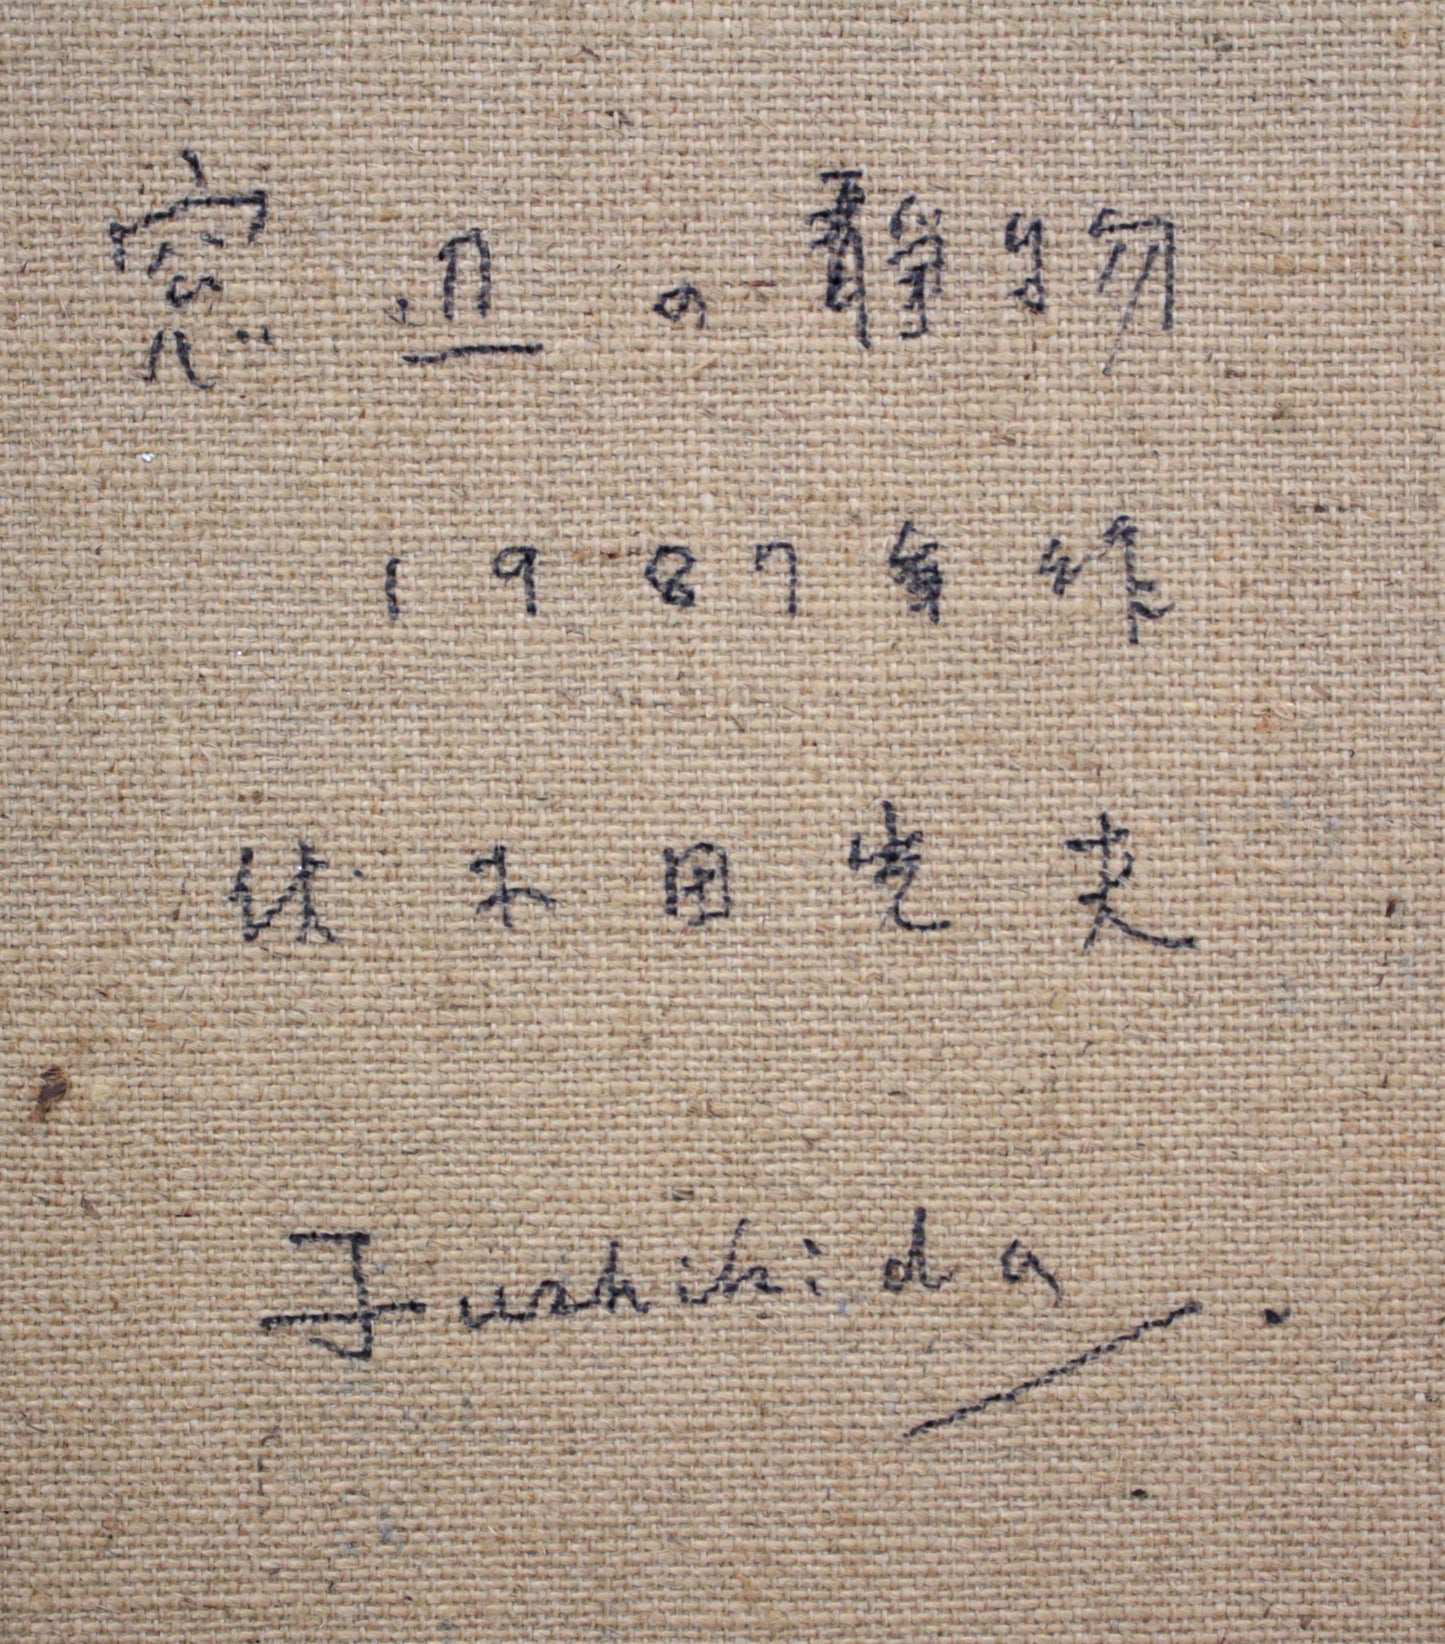 窓辺の静物
1987年作
伏木田光夫
Fushikida.